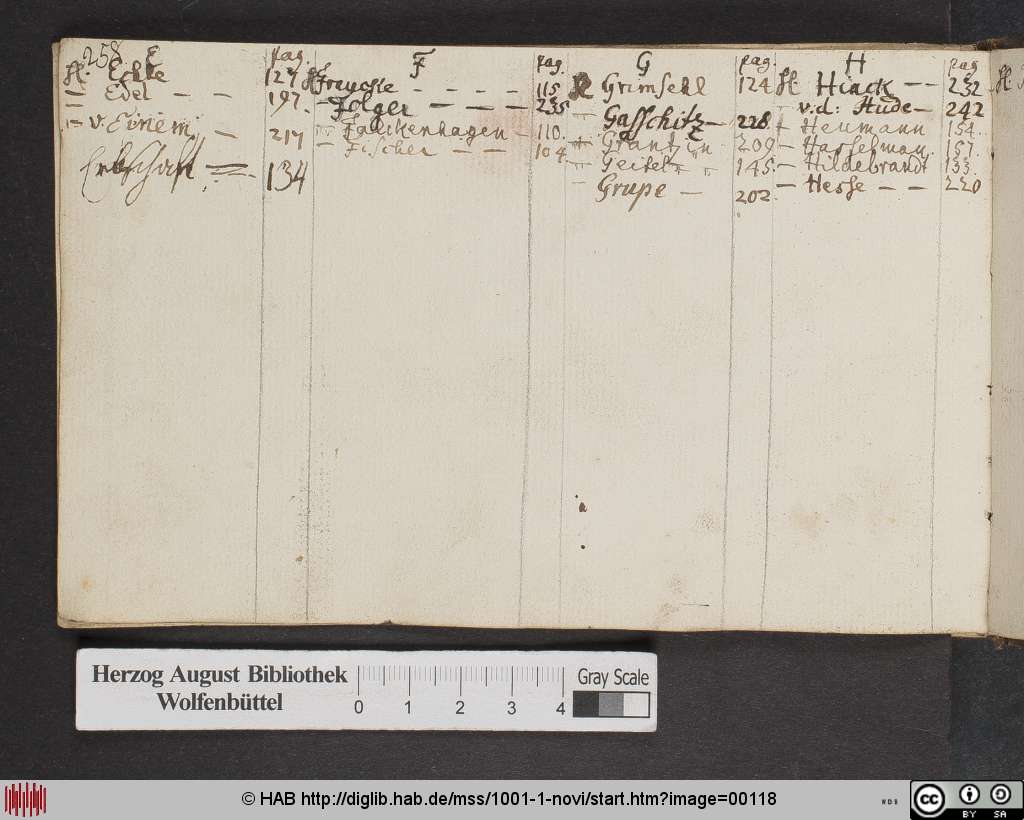 258 E pag.
H. Eckte 127
— Edel — — 197.
— v. Einem — 217
Erbschaft = 134
F pag.
H. Freytte - - - - 115
— Folger — — — 235
— Falckenhagen — 110.
— Fischer — — 104
G pag.
H. Grimsehl 124
— Gasschitz — 228.
— Grantzin 209
— Geitel 145.
— Grupe — 202.
H pag
H. Hiack — — 232
— v.d: Hude — 242
— Heumann 154.
— Hasselman 157.
— Hildebrandt 133.
— Hesse — — 220
H.
Herzog August Bibliothek
Wolfenbüttel
0 1 2 3 4
Gray Scale
© HAB http://diglib.hab.de/mss/1001-1-novi/start.htm?image=00118
cc BY SA